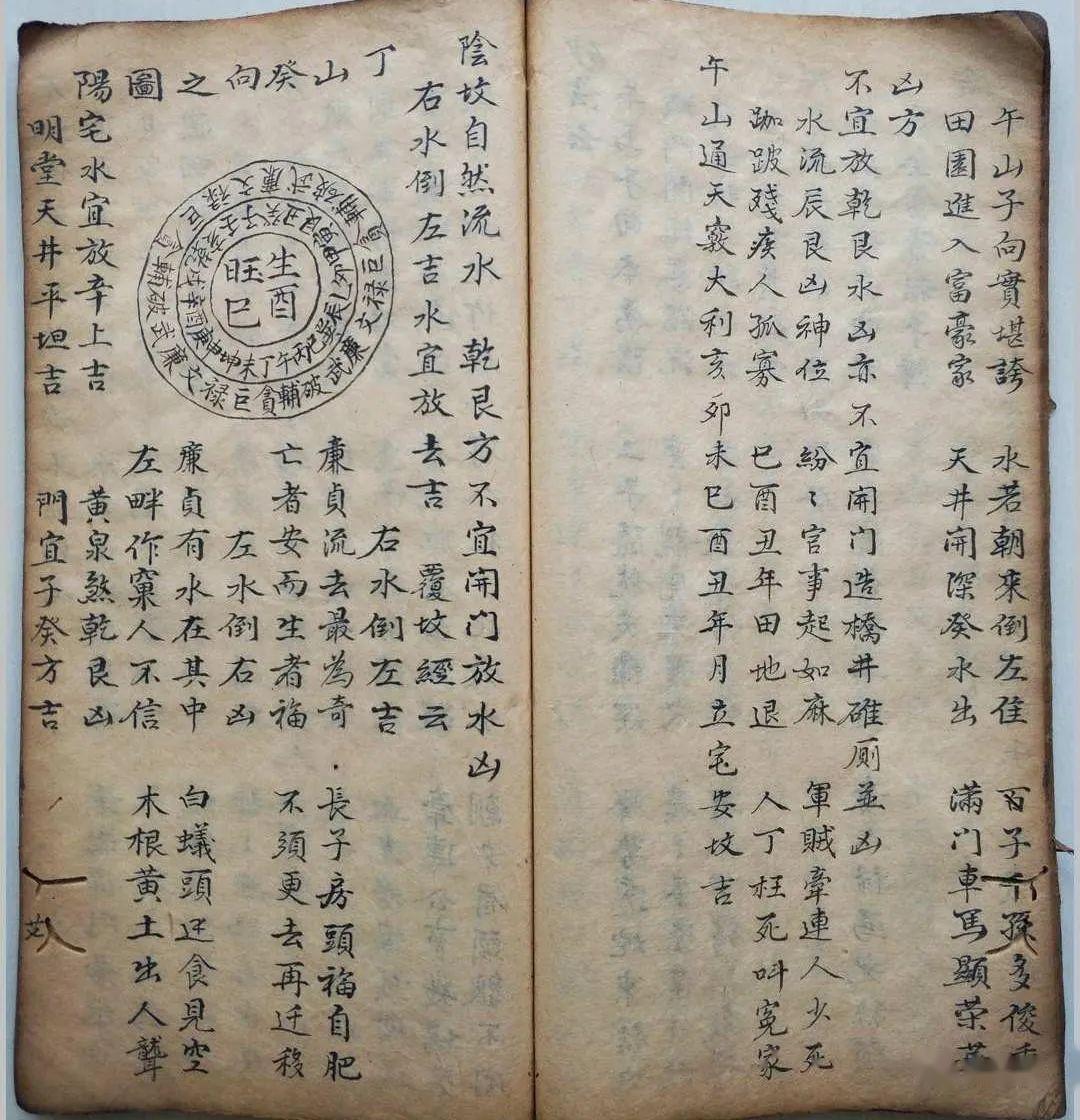 午山子向實堪誇 水若朝來倒左佳 百子千孫多俊
田園進入富豪家 天井開深癸水出 滿门車馬顯荣
凶方
不宜放乾艮水凶亦不宜開门造橋井碓厠並凶
水流辰艮凶神位 紛〻官事起如麻 軍賊牽連人少死
跏跛殘疾人孤寡 巳酉丑年田地退 人丁枉死叫冤家
午山通天竅大利亥卯未巳酉丑年月立宅安坟吉
陰坟自然流水 乾艮方不宜開门放水凶
右水倒左吉水宜放去吉 覆坟經云
丁山癸向之圖
生酉
旺巳
丙午丁未坤申庚酉辛戌乾亥壬子癸丑
文廉武破輔貪巨祿文廉武破輔
右水倒左吉
廉貞流去最為奇 長子房頭福自肥
亡者安而生者福 不須更去再迁移
左水倒右凶
廉貞有水在其中 白蟻頭边食見空
左畔作窠人不信 木根黄土出人聾
陽宅水宜放辛上吉 黃泉煞乾艮凶
明堂天井平坦吉 門宜子癸方吉